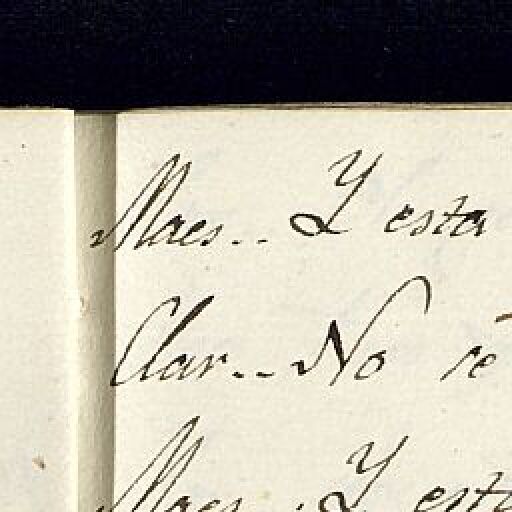 Maes.. Y esta
Clar.. No sé
Maes.. Y esta